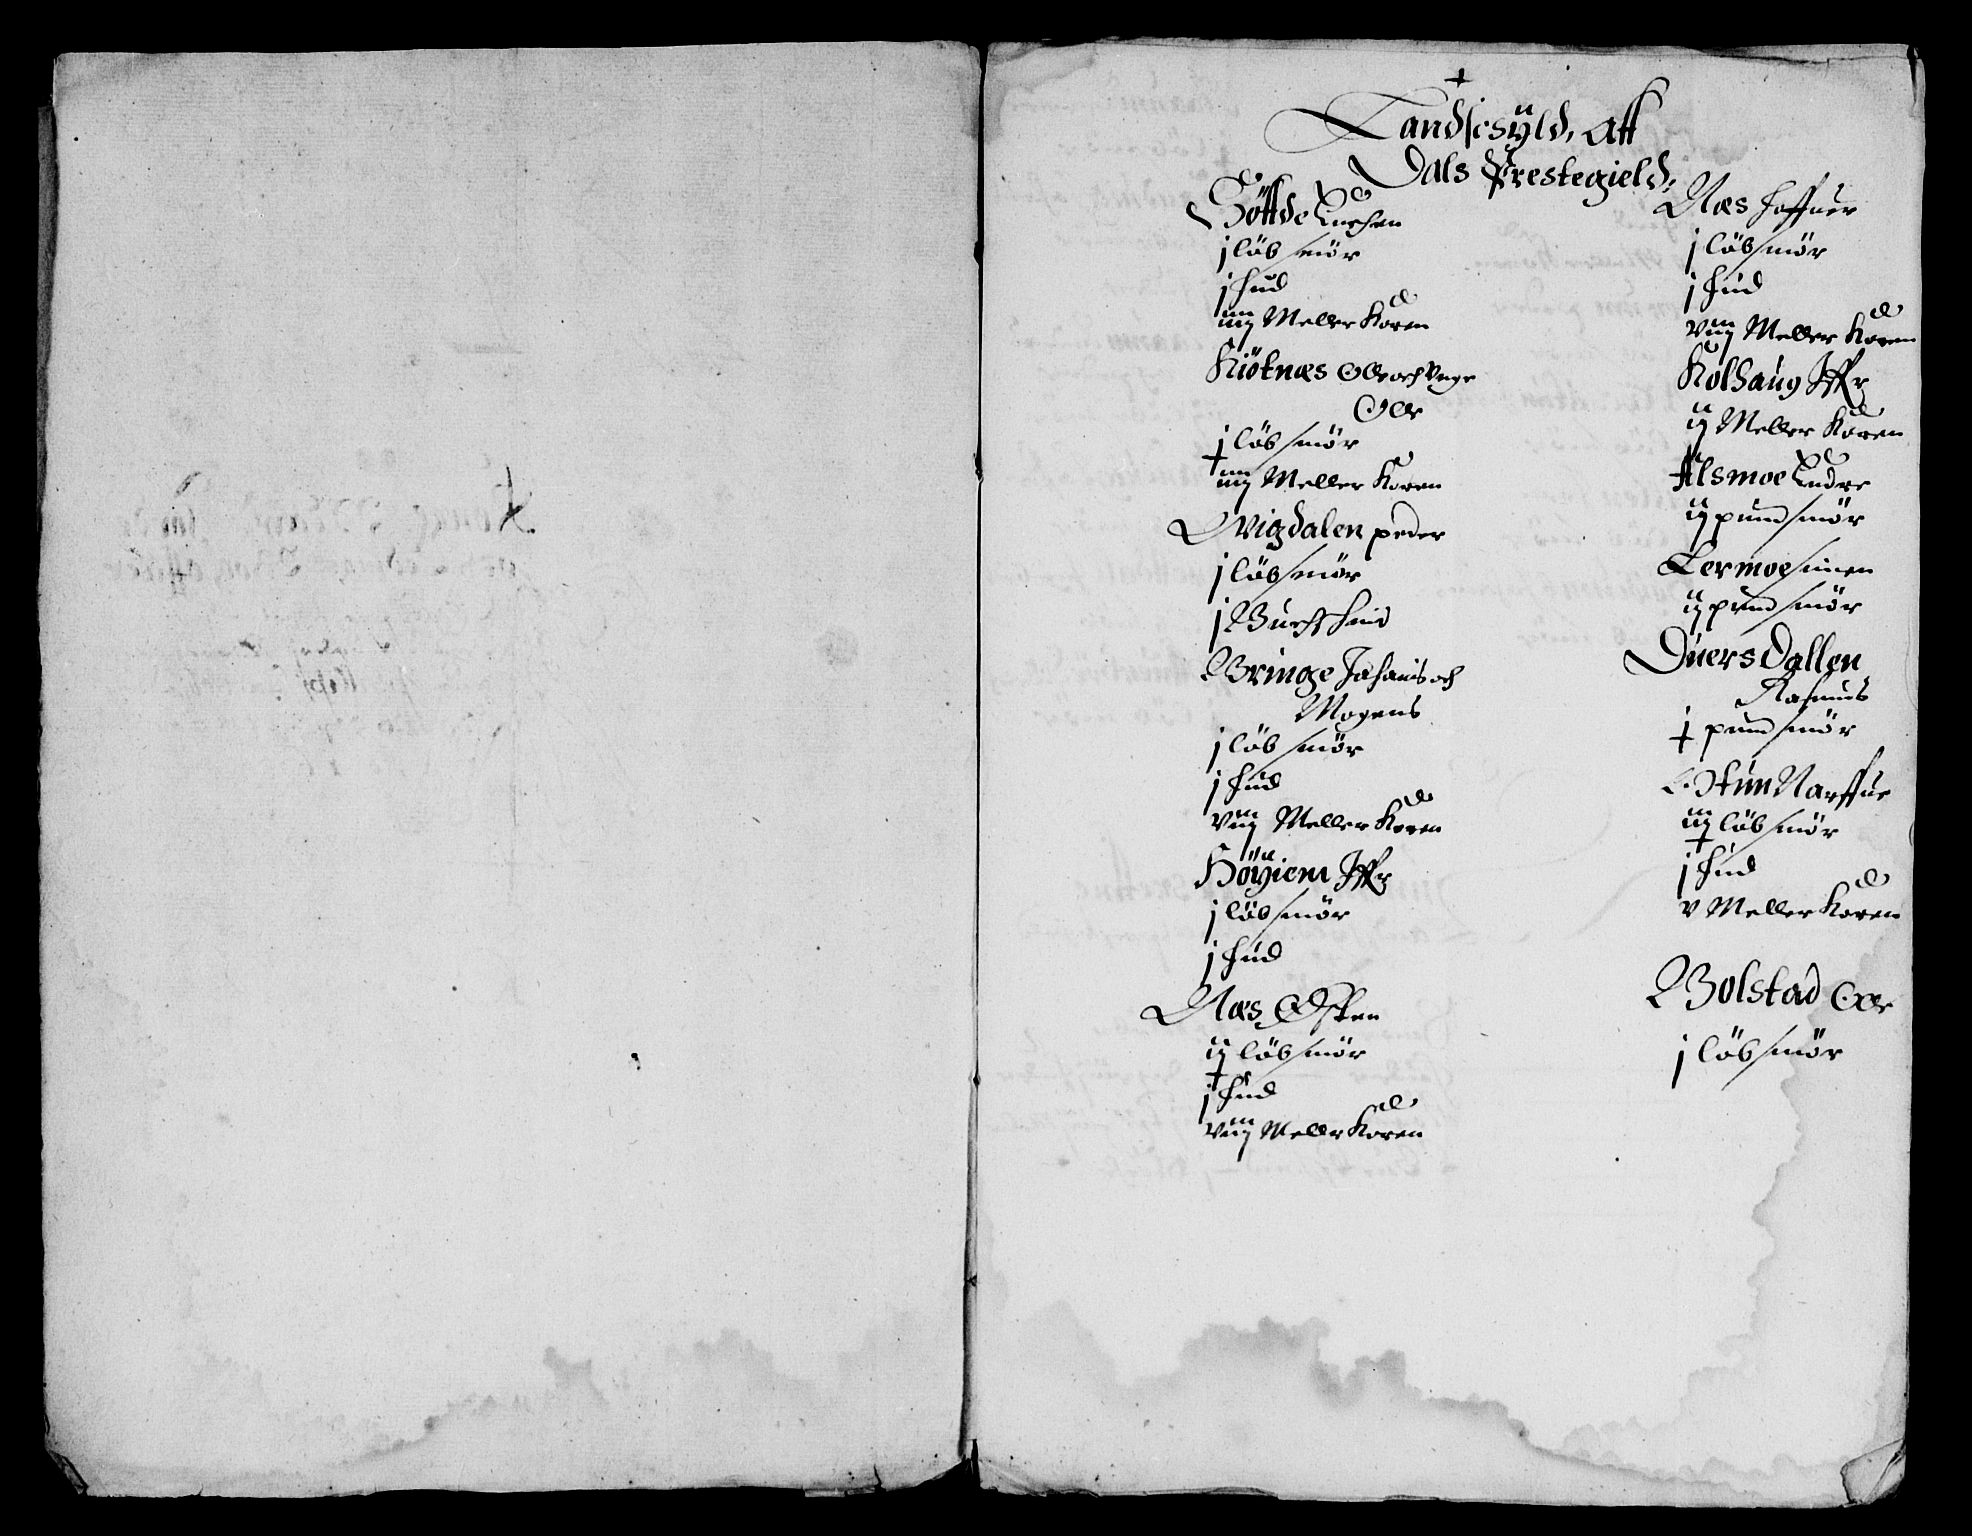 Landsc̄ÿld, Aff
Dals Prestegield,
Göttde
j löb smör
j hud
iiij Meller Koren
Kiötnæs Olle och Unge
Olle
j löb smör
iiij Meller Koren
Vigdalen peder
j löb smör
j Buch hud
Bringe Johanis och
Mogens
j löb smör
j hud
viij Meller Koren
Höÿiem
j löb smör
j hud
Næs Østen
ij löb smör
j hud
viij Meller Koren
Næs haffuer
j löb smör
j hud
viij Meller Koren
Kolhaug
ij Meller Koren
Alsmoe
ij pund smör
Lermoe simen
ij pund smör
Duersdallen
Rasmus
j pund smör
Narffue
iij löb smör
j hud
v Meller Koren
Bolstad Olle
j löb smör